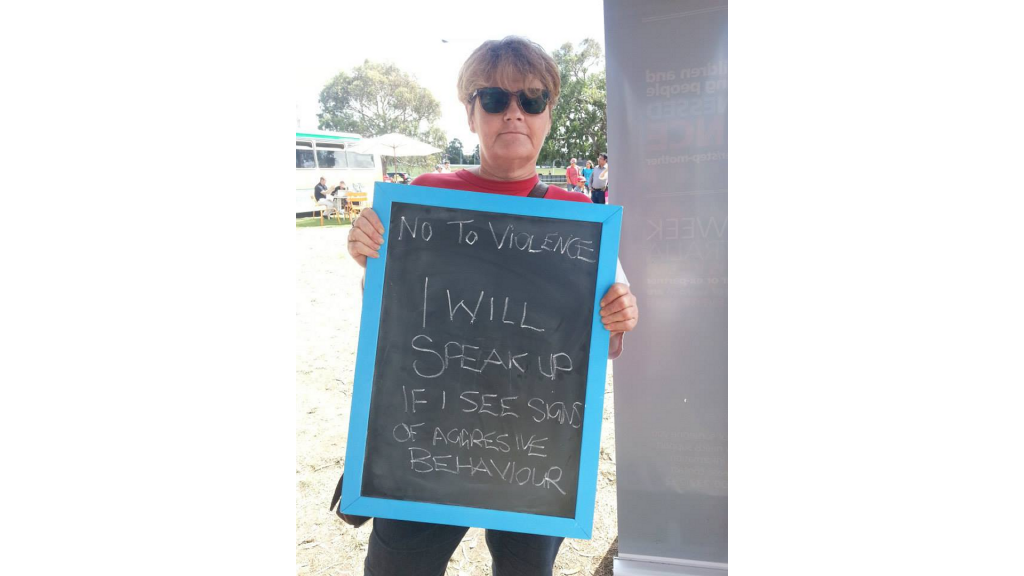 NO TO VIOLENCE
I WILL
SPEAK UP
IF I SEE SIGNS
OF AGGRESIVE
BEHAVIOUR
ldren and
ng people
ESSED
step-mother
WEEK